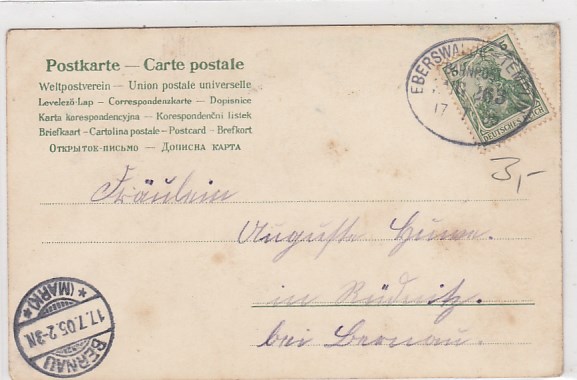 Postkarte — Carte postale
Weltpostverein — Union postale universelle
Levelező-Lap — Correspondenzkarte — Dopisnice
Karta korespondencyjna — Korespondenční listek
Briefkaart — Cartolina postale — Postcard — Brefkort
Открытое-письмо — Дописна карта
EBERSWALDE
BAHNPOST
ZUG 263
17
DEUTSCHES REICH
3,-
Fräulein
Auguste Huwe.
in Rüdnitz.
bei Bernau.
* (MARK) *
17.7.05.2-3N
BERNAU